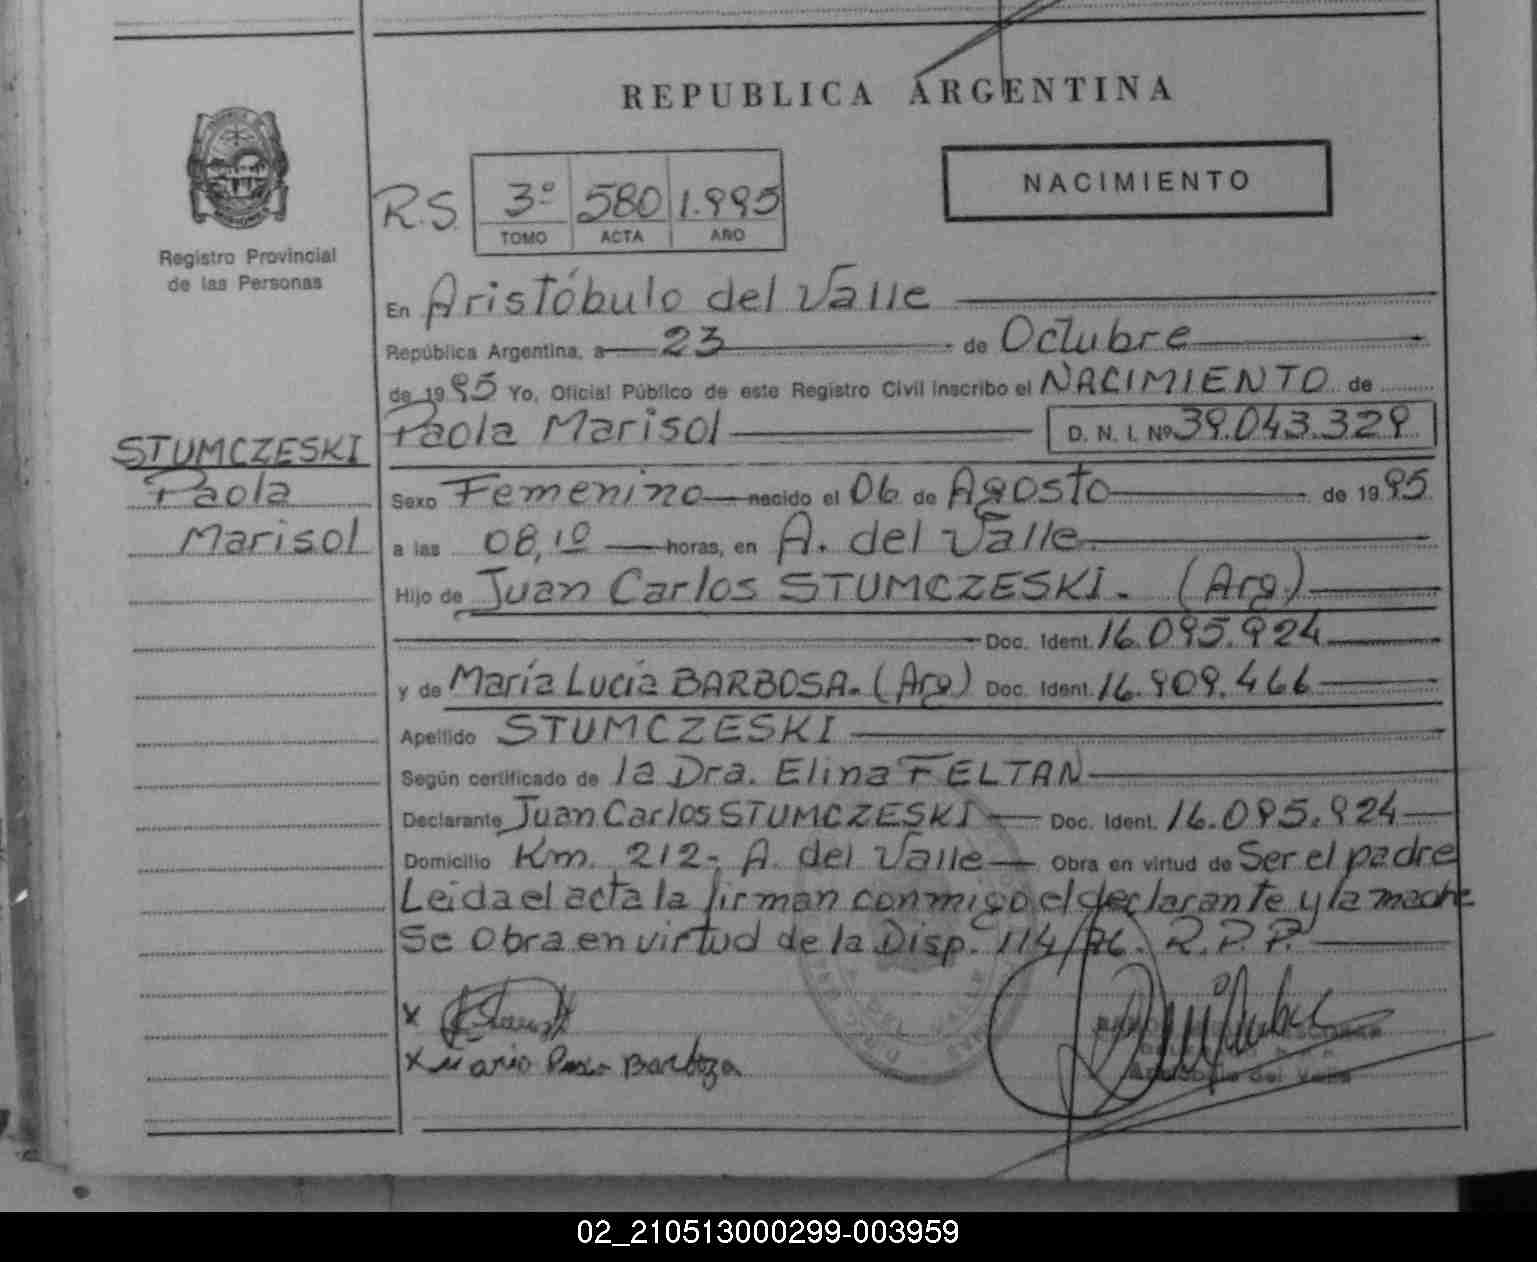 REPUBLICA ARGENTINA
NACIMIENTO
R.S. 3º 580 1.995
TOMO ACTA AÑO
Registro Provincial
de las Personas
En Aristóbulo del Valle
República Argentina, a 23 de Octubre
de 1995 Yo, Oficial Público de este Registro Civil inscribo el NACIMIENTO de
Paola Marisol D. N. I. Nº 39.043.329
STUMCZESKI
Paola
Marisol
Sexo Femenino nacido el 06 de Agosto de 1995
a las 08,10 horas, en A. del Valle.
Hijo de Juan Carlos STUMCZESKI. (Arg)
Doc. Ident. 16.095.924
y de María Lucía BARBOSA. (Arg) Doc. Ident. 16.909.466
Apellido STUMCZESKI
Según certificado de la Dra. Elina FELTAN
Declarante Juan Carlos STUMCZESKI Doc. Ident. 16.095.924
Domicilio Km. 212- A. del Valle Obra en virtud de Ser el padre
Leida el acta la firman conmigo el declarante y la madre
Se Obra en virtud de la Disp. 114/86. R.P.P.
x
x Barboza
02_210513000299-003959